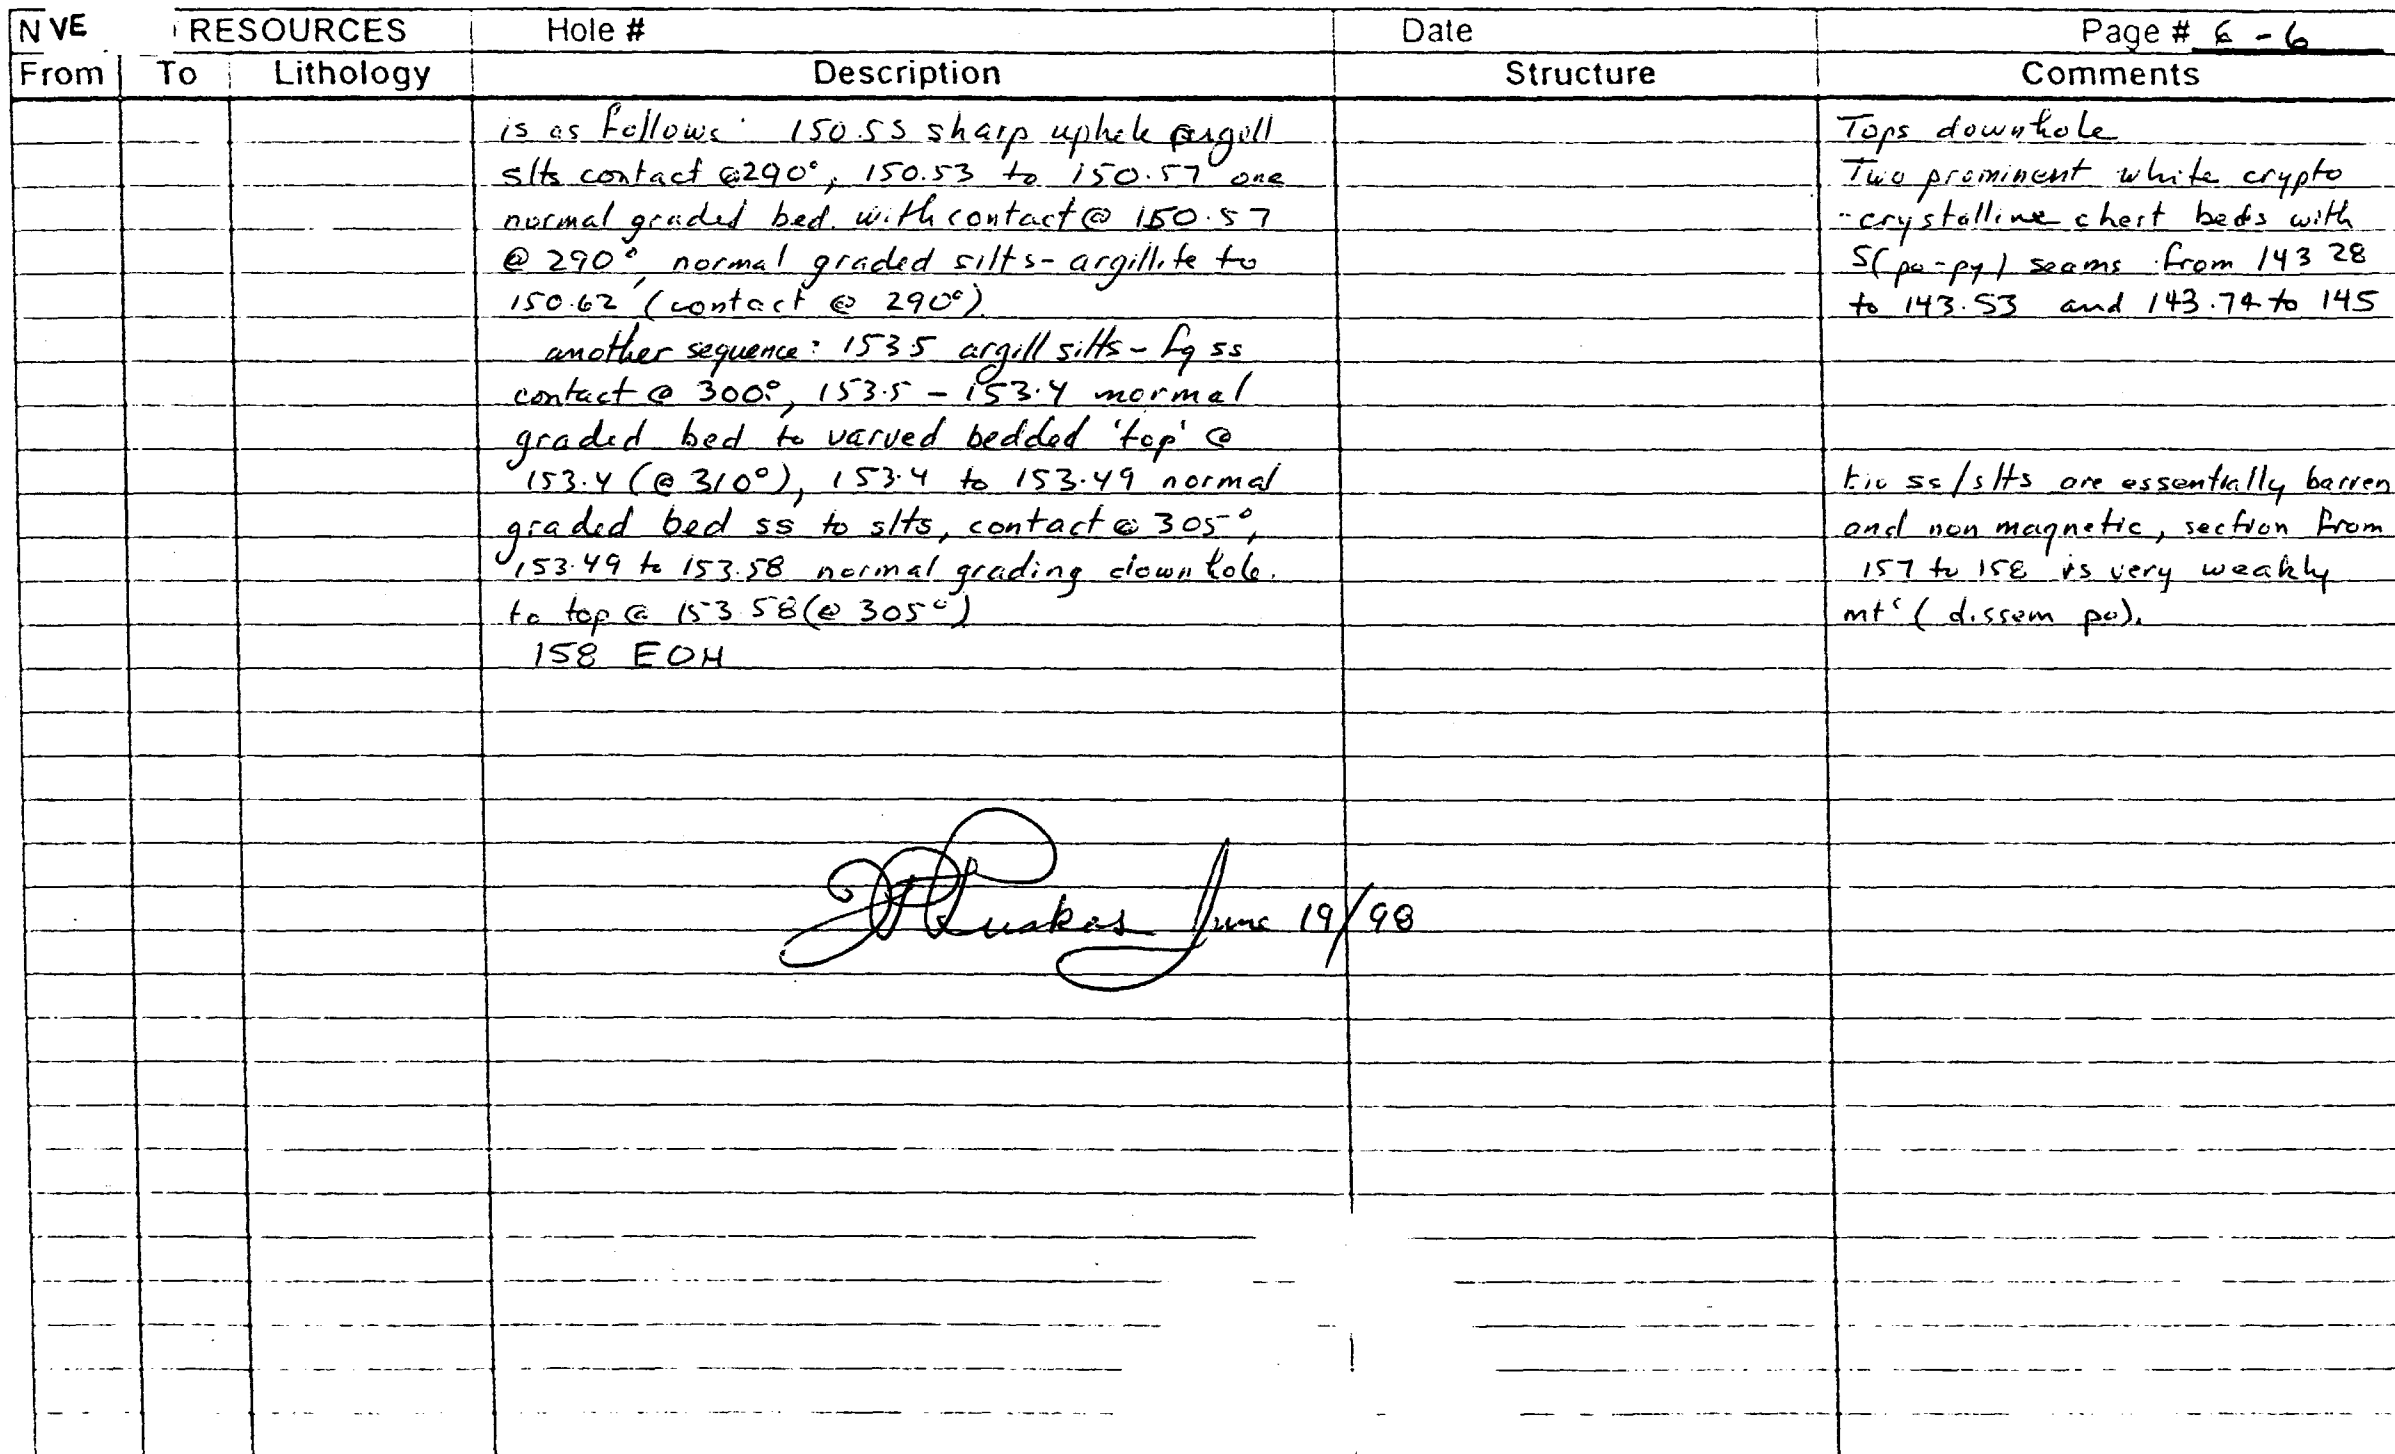 N VE RESOURCES Hole # Date Page # 6 - 6
From To Lithology Description Structure Comments
is as follows: 150.53 sharp uphole argill
slts contact @290°, 150.53 to 150.57 one
normal graded bed. with contact @ 150.57
@ 290°, normal graded silts-argillite to
150.62 (contact @ 290°).
another sequence: 153.5 argill silts - fg ss
contact @ 300°, 153.5 - 153.4 normal
graded bed to varved bedded 'top' @
153.4 (@ 310°), 153.4 to 153.49 normal
graded bed ss to slts, contact @ 305°,
153.49 to 153.58 normal grading downhole.
to top @ 153.58 (@ 305°)
158 EOH
Tops downhole
Two prominent white crypto
-crystalline chert beds with
S(po-py) seams from 143.28
to 143.53 and 143.74 to 145
ss/slts are essentially barren
and non magnetic, section from
157 to 158 is very weakly
mt (dissem po).
June 19/98